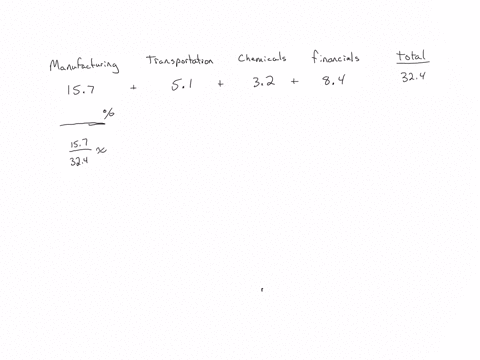 Manufacturing Transportation Chemicals financials total
15.7 + 5.1 + 3.2 + 8.4 32.4
%
15.7
32.4 x